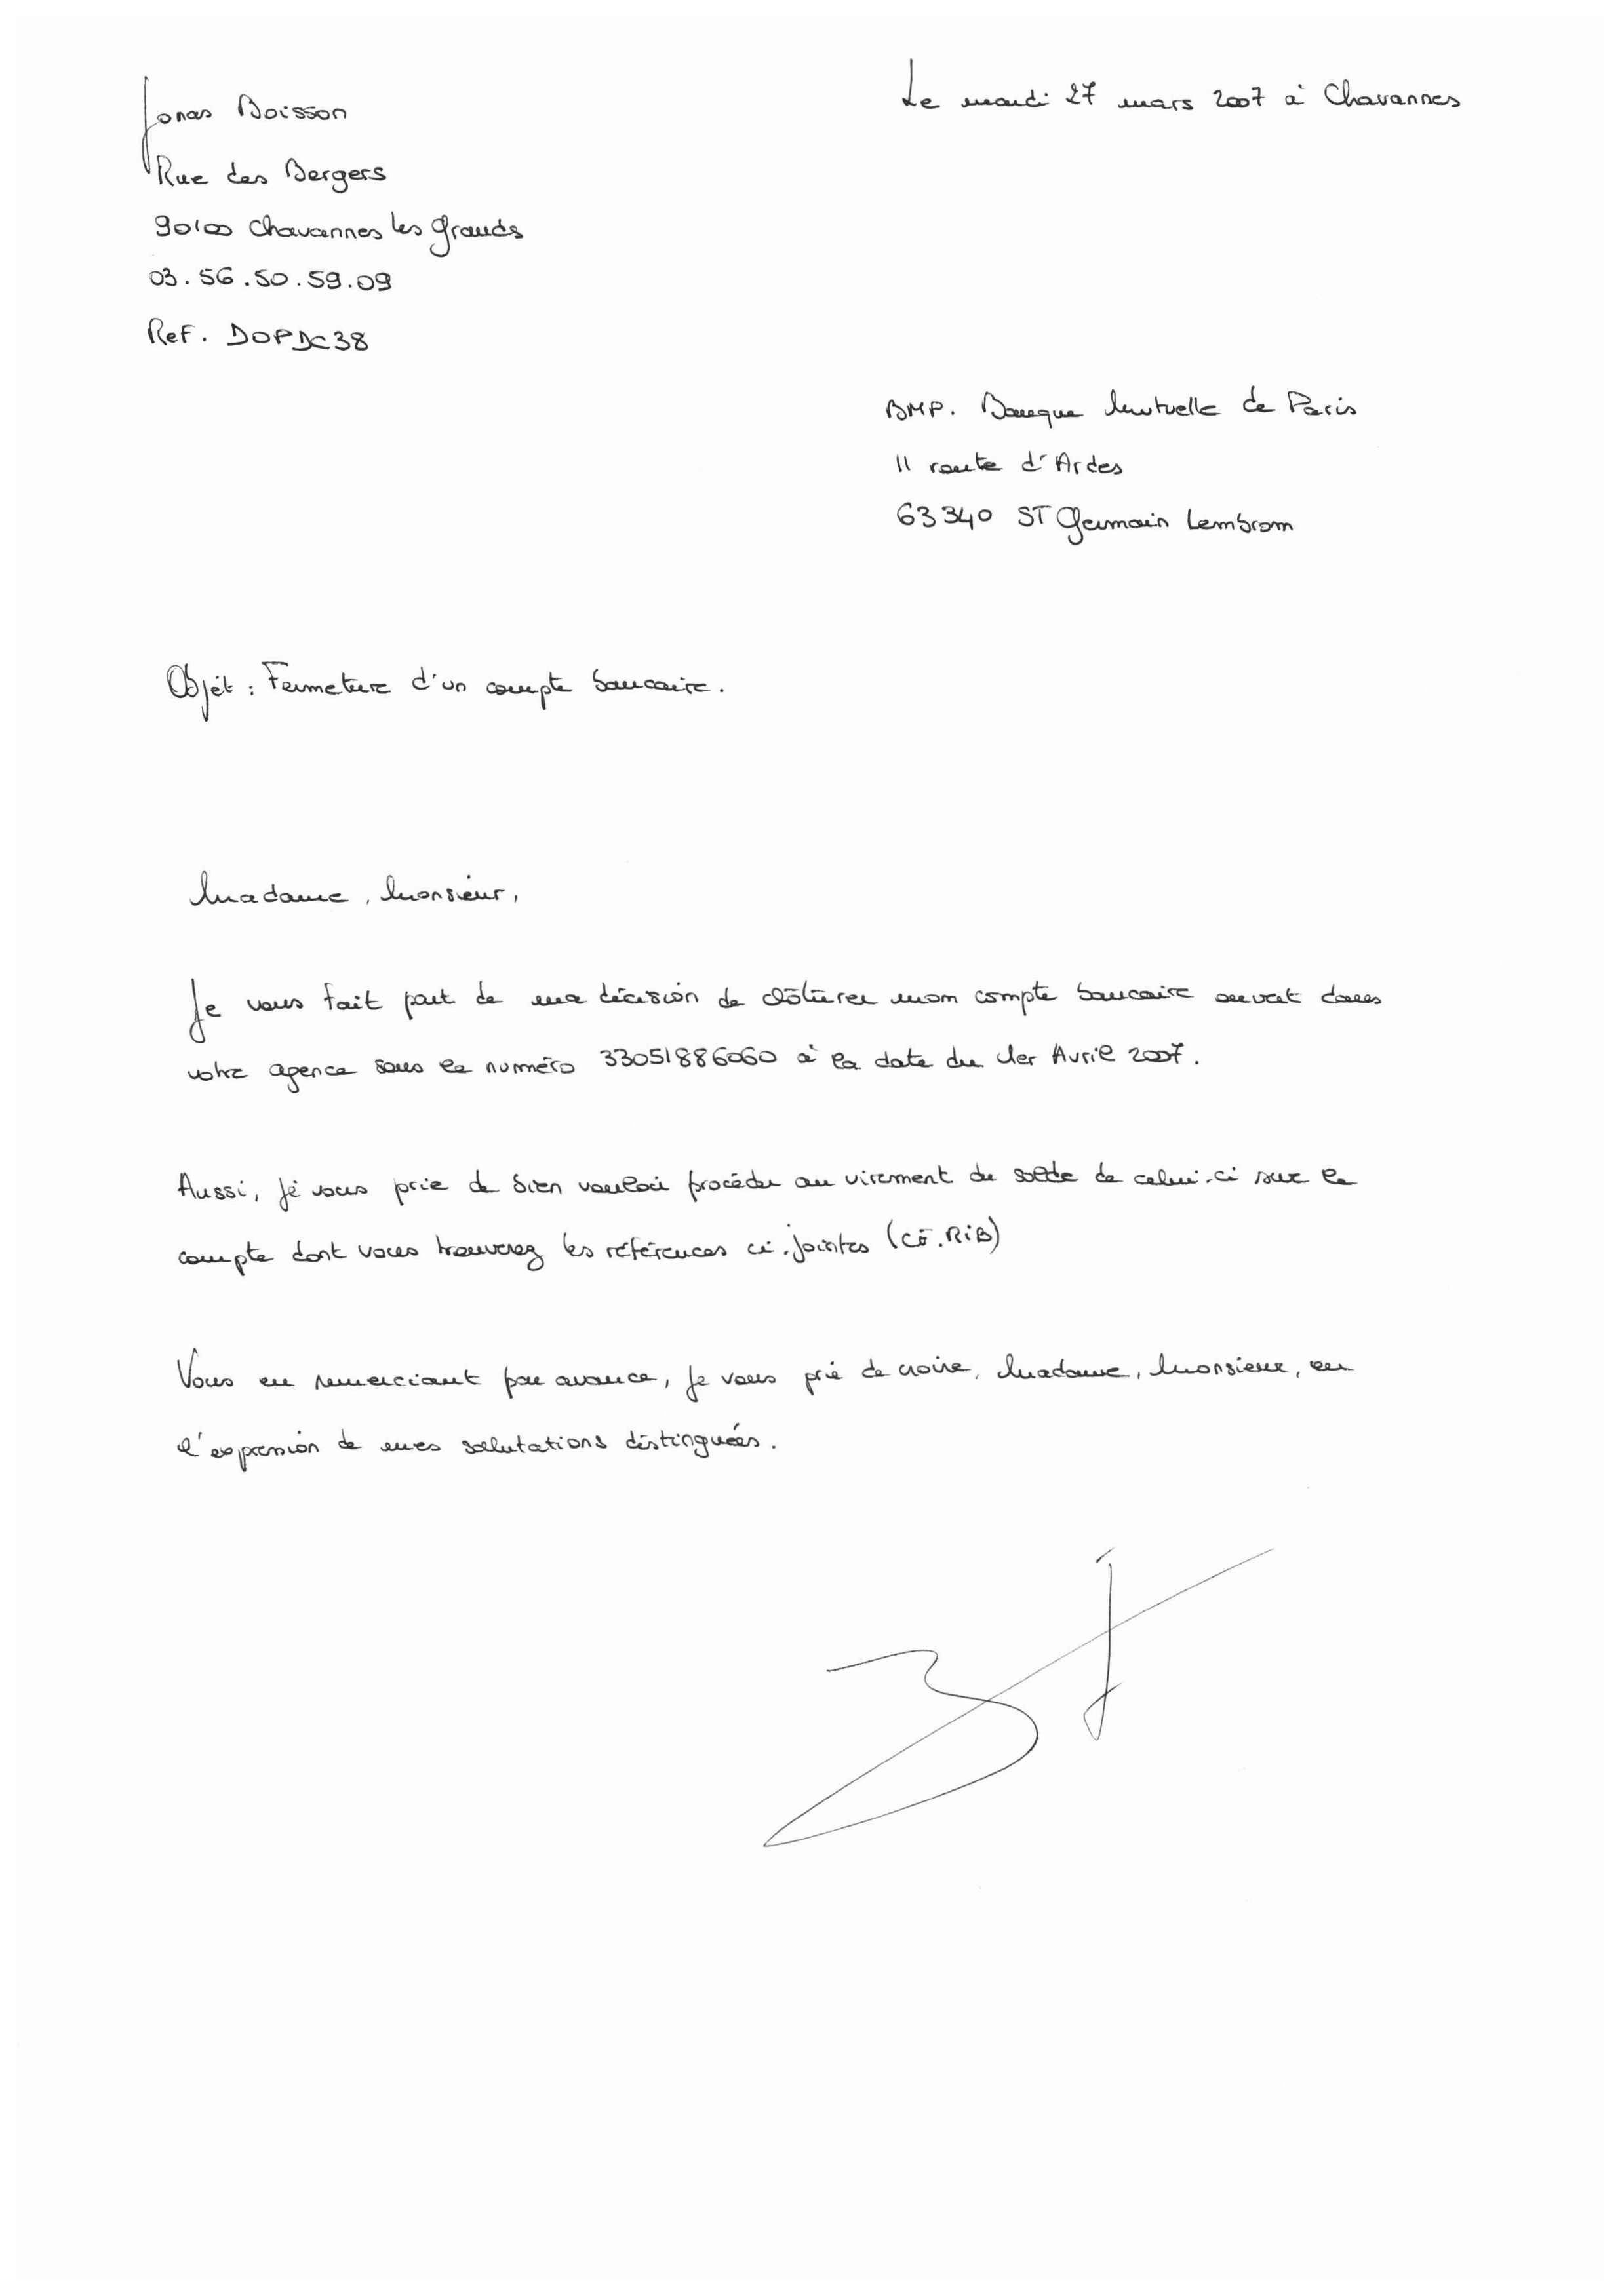 Jonas Boisson
Le mardi 27 mars 2007 à Chavannes
Rue des Bergers
90100 Chavannes les Grands
03.56.50.59.09
Ref. DOPDC38
BMP. Banque Mutuelle de Paris
11 route d'Ardes
63340 ST Germain Lembrom
Objet : Fermeture d'un compte bancaire.
Madame, Monsieur,
Je vous fait part de ma décision de clôturer mon compte bancaire ouvert dans
votre agence sous le numéro 33051886060 à la date du 1er Avril 2007.
Aussi, je vous prie de bien vouloir procéder au virement du solde de celui-ci sur le
compte dont vous trouverez les références ci-jointes (CF. RIB)
Vous en remerciant par avance, je vous prie de croire, Madame, Monsieur, en
l'expression de mes salutations distinguées.